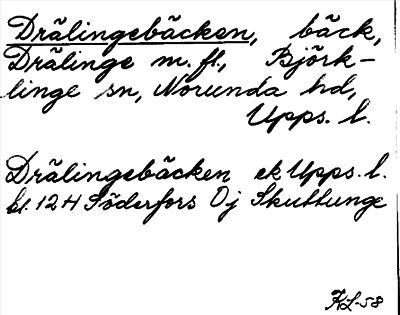 Drälingebäcken, bäck,
Drälinge m. fl., Björk-
linge sn, Norunda hd,
Upps. l.
Drälingebäcken ek Upps. l.
bl. 12 H Söderfors Öj Skuttunge
KL-58